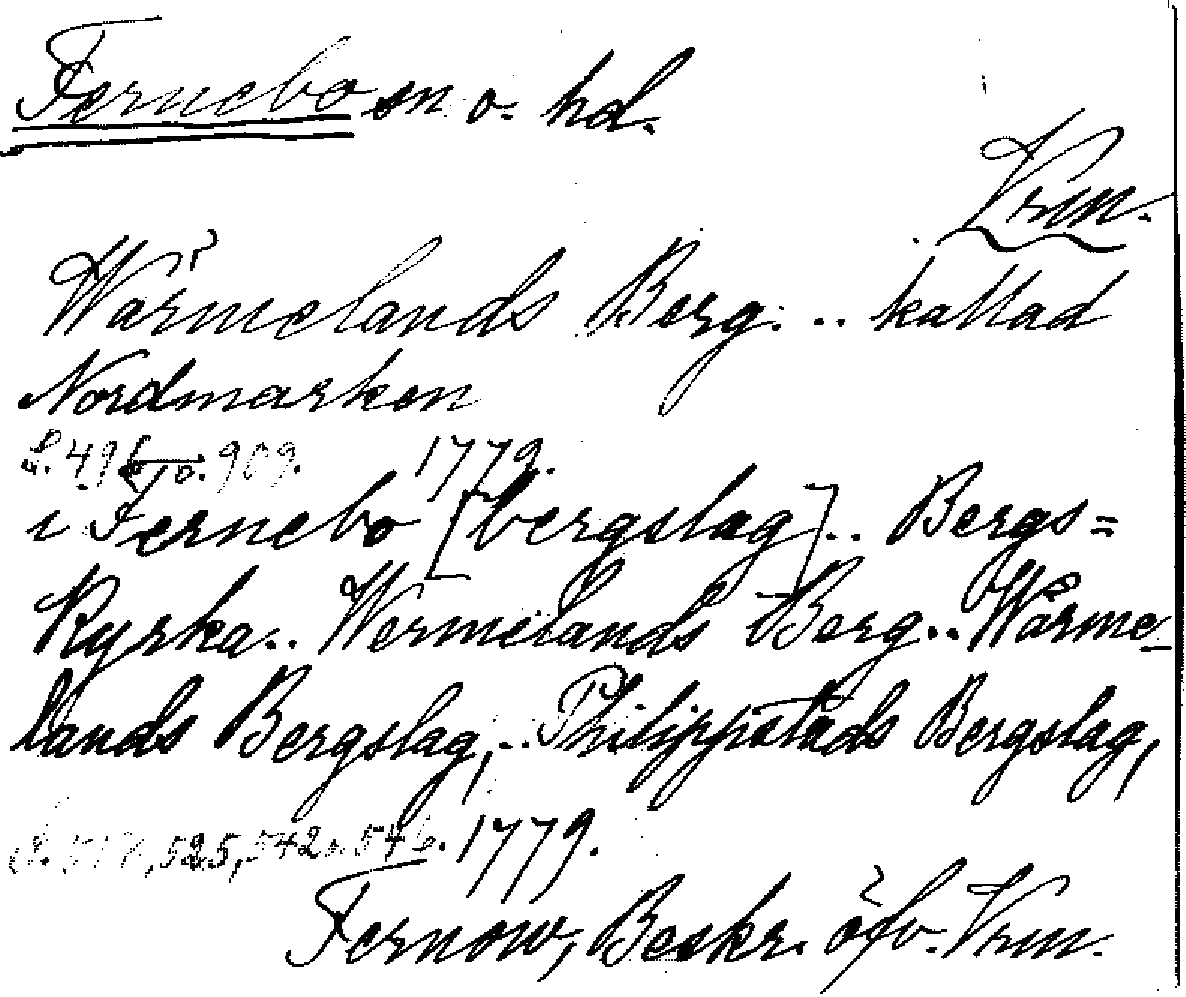 Fernebo sn o. hd.
Vrm.
Wärmelands Berg. .. kallad
Nordmarken
909. 1779.
i Fernebo [bergslag] .. Bergs=
Kyrka .. Wermelands Berg .. Wärme-
lands Bergslag, .. Philippstads Bergslag,
525, 542 546. 1779.
Fernow, Beskr. öfv. Vrm.